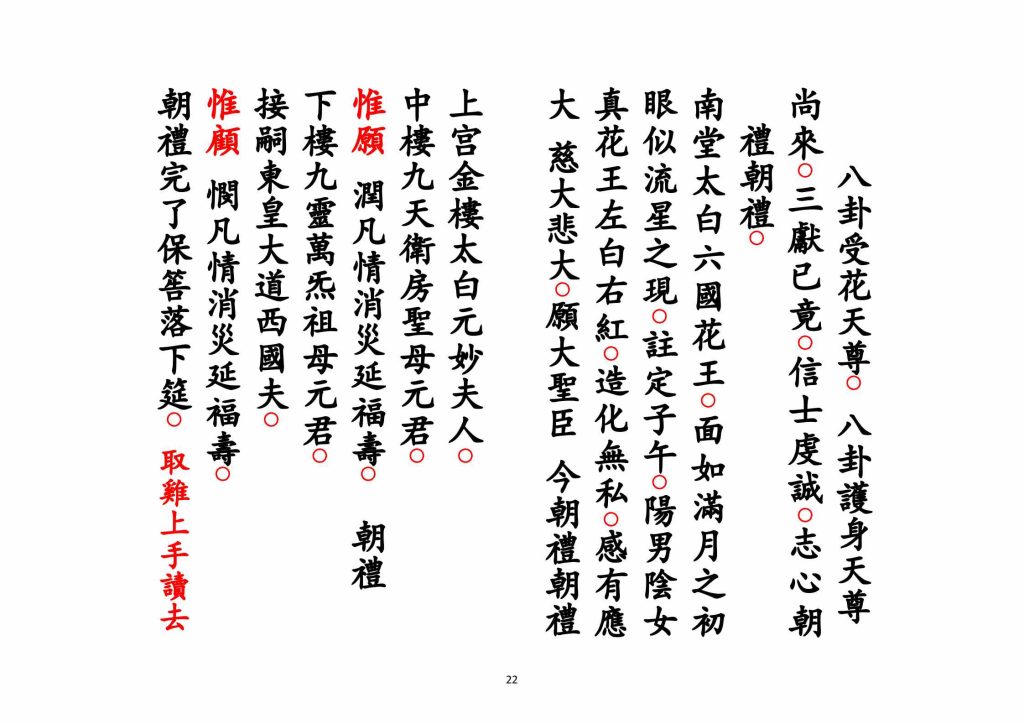 八卦受花天尊○ 八卦護身天尊
尚來○三獻已竟○信士虔誠○志心朝
禮朝禮○
南堂太白六國花王○面如滿月之初
眼似流星之現○註定子午○陽男陰女
真花王左白右紅○造化無私○感有應
大 慈大悲大○願大聖臣 今朝禮朝禮
上宮金樓太白元妙夫人○
中樓九天衛房聖母元君○
惟願 潤凡情消災延福壽○ 朝禮
下樓九靈萬炁祖母元君○
接嗣東皇大道西國夫○
惟顧 憫凡情消災延福壽○
朝禮完了保筶落下筵○ 取雞上手讀去
22